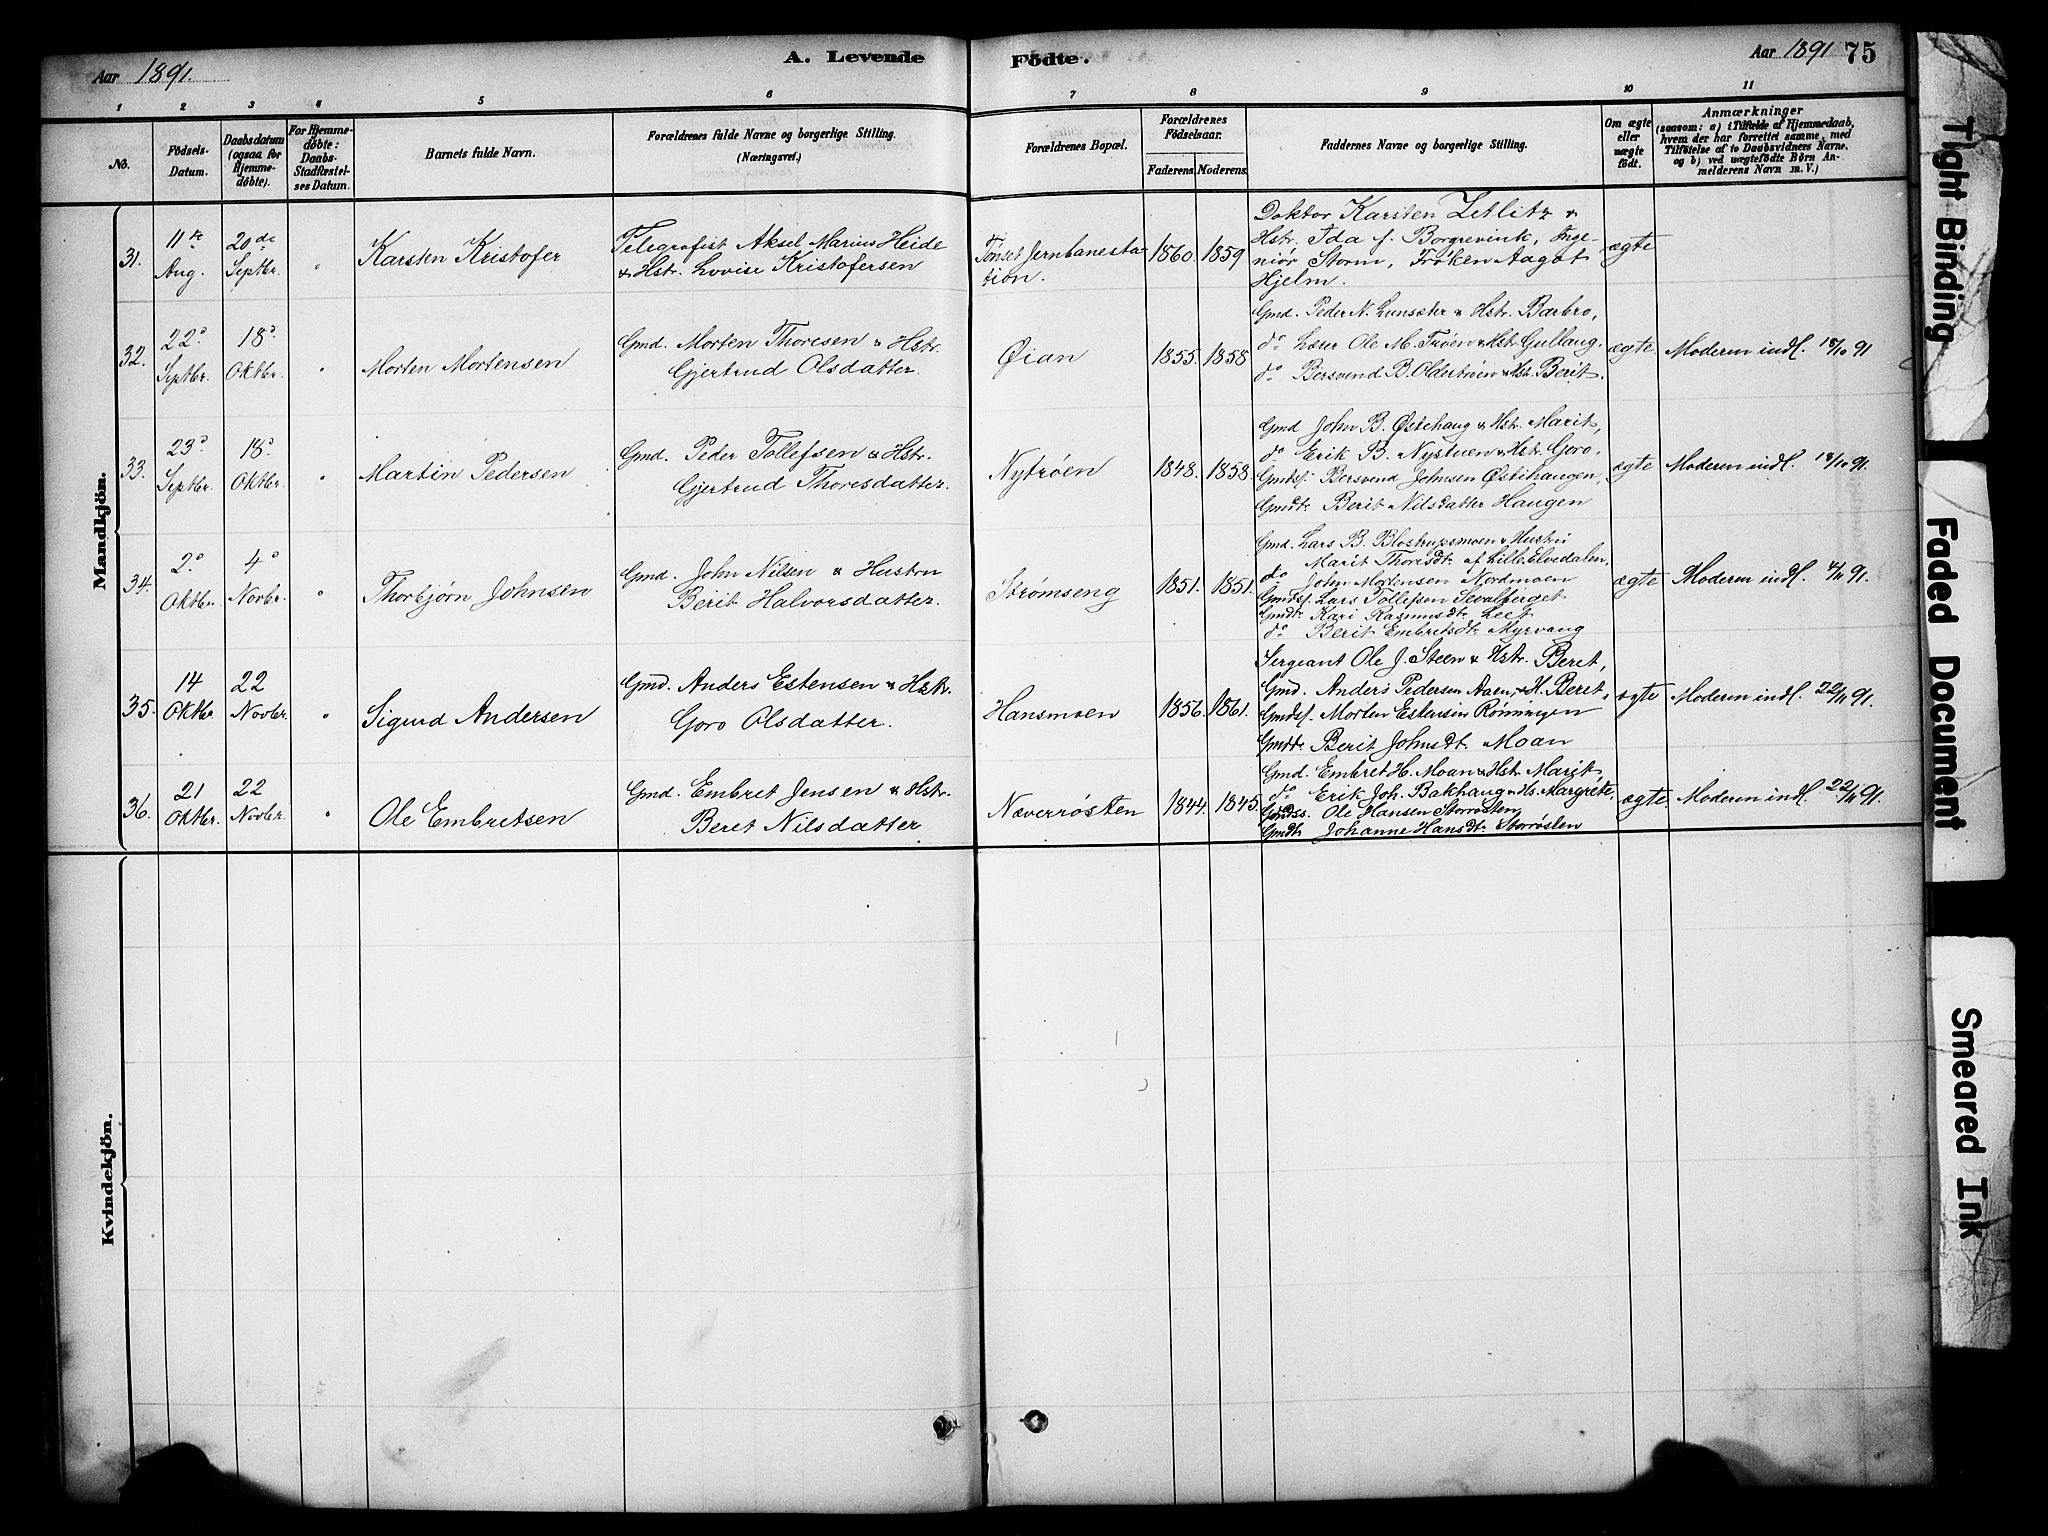 Aar 1891.
A. Levende
Födte.
Aar 1891
75
1 2 3 4 5 6 7 8 9 10 11
No.
Födsels-
Datum.
Daabsdatum
(ogsaa for
Hjemme-
döbte).
For Hjemme-
döbte:
Daabs-
Stadfæstel-
ses Datum.
Barnets fulde Navn.
Forældrenes fulde Navne og borgerlige Stilling.
(Næringsvei.)
Forældrenes Bopæl.
Forældrenes
Födselsaar.
Faderens. Moderens.
Faddernes Navne og borgerlige Stilling.
Om ægte
eller
uægte
födt.
Anmærkninger
(saasom: a) i Tilfælde af Hjemmedaab,
hvem der har forrettet samme, med
Tilföielse af to Daabsvidners Navne.
og b) ved uægtefödte Börn An-
melderens Navn m. V.)
Mandkjön.
31.
11te
Aug.
20de
Septbr.
"
Karsten Kristofer
Telegrafist Aksel Marius Heide
& Hstr. Lovise Kristofersen
Tønset Jernbanesta-
tion.
1860. 1859
Doktor Karsten Zetlitz &
Hstr. Ida f. Borgrevink, Inge-
niör Storm, Frøken Aagot
Hjelm.
ægte
32.
22d
Septbr.
18d
Oktbr.
"
Morten Mortensen
Gmd. Morten Thoresen & Hstr.
Gjertrud Olsdatter.
Øian
1855. 1858
Gmd. Peder N. Lunsæter & Hstr. Barbro,
do Lærer Ole M. Trøen & Hst. Gullaug.
do Bersvend B. Oldertrøen & Hst. Berit.
ægte.
Moderen indl. 18/10 91
33.
23d
Septbr.
18d
Oktbr.
"
Martin Pedersen
Gmd. Peder Tollefsen & Hstr.
Gjertrud Thoresdatter.
Nytrøen
1848. 1858.
Gmd John B. Østihaug & Hst. Marit,
do Erik B. Nystuen & Hst. Goro,
Gmdsf. Bersvend Johnsen Østihaugen,
Gmdt. Berit Nilsdatter Haugen
ægte
Moderen indl. 18/10 91.
34.
2d
Oktbr.
4d
Novbr.
"
Thorbjørn Johnsen
Gmd. John Nilsen & Hustru
Berit Halvorsdatter.
Strømseng
1851. 1851.
Gmd. Lars B. Blostrupsmoen & Hustru
Marit Thoresdt. af Lille Elvedalen,
do John Mortensen Nordmoen
Gmdsf. Lars Tollefsen
Gmdt. Kari Rasmusdt.
do Berit Embretsdt. Myrvang
ægte
Moderen indl. 4/11 91.
35.
14
Oktbr.
22
Novbr.
"
Sigurd Andersen
Gmd. Anders Estensen & Hstr.
Goro Olsdatter.
Hansmoen
1856. 1861.
Sergeant Ole J. Steen & Hstr. Beret,
Gmd. Anders Pedersen Aaen, & H. Beret,
Gmdsf. Morten Estensen Rønningen
Gmdt. Berit Johnsdt. Moan
ægte
Moderen indl. 22/11 91.
36.
21
Oktbr.
22
Novbr.
"
Ole Embretsen
Gmd. Embret Jensen & Hstr.
Beret Nilsdatter
Næverrøsten
1844. 1845.
Gmd. Embret H. Moan & Hstr. Marit,
do Erik Joh. Bakhaug & Hs. Margrete,
Gmdss. Ole Hansen Storrøsten
Gmdt. Johanne Hansdt. Storrøsten
ægte
Moderen indl. 22/11 91.
Kvindekjön.
Tight Binding
Faded Document
Smeared Ink